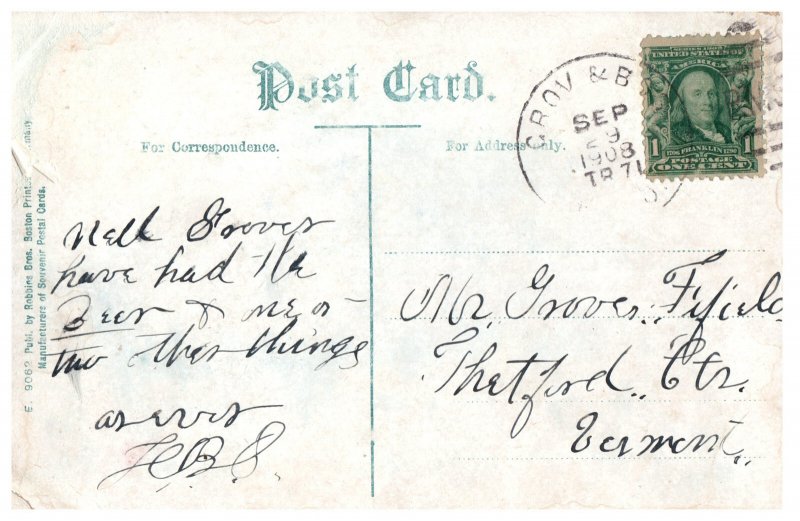 Post Card.
For Correspondence.
For Address Only.
GROV & B
SEP
29
1908
TR 71
SERIES 1902
UNITED STATES OF
AMERICA
1706 FRANKLIN 1790
1 1
POSTAGE
ONE CENT
E 9062 Publ. by Robbins Bros. Boston Printe
many
Manufacturers of Souvenir Postal Cards.
Well Grover
have had the
Beer & one or
two other things
as ever
Mr. Grover Fifield
Thetford Ctr.
Vermont.